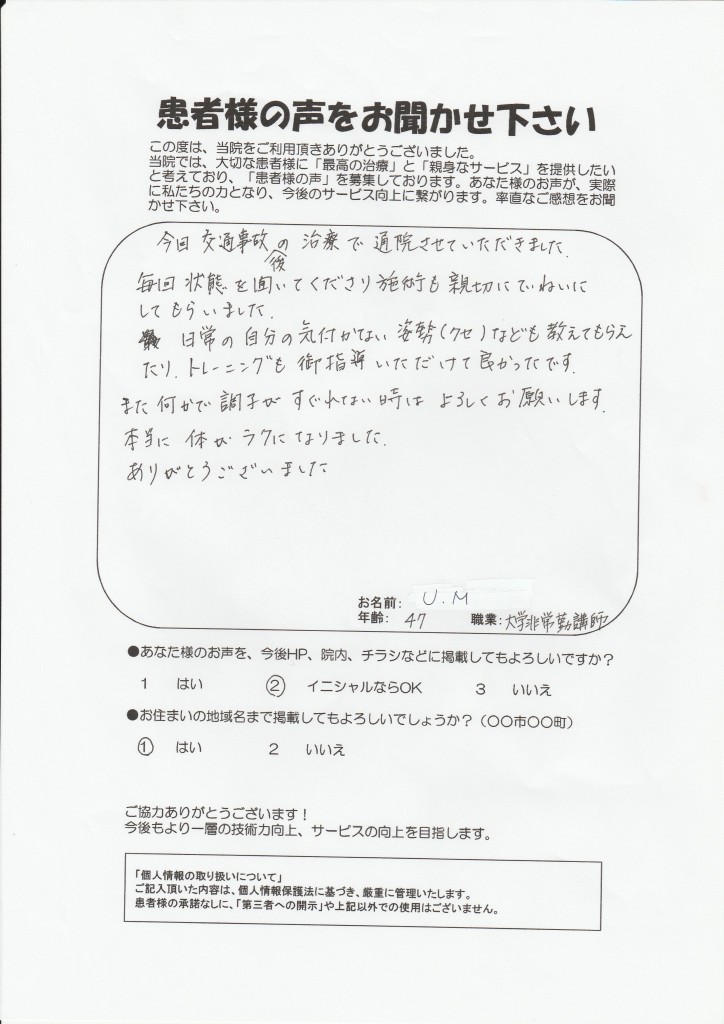 患者様の声をお聞かせ下さい
この度は、当院をご利用頂きありがとうございました。
当院では、大切な患者様に「最高の治療」と「親身なサービス」を提供したい
と考えており、「患者様の声」を募集しております。あなた様のお声が、実際
に私たちの力となり、今後のサービス向上に繋がります。率直なご感想をお聞
かせ下さい。
今回 交通事故後の 治療で 通院させていただきました.
毎回 状態を聞いてくださり施術も親切にていねいに
してもらいました.
日常の自分の気付かない姿勢(クセ)なども教えてもらえ
たり.トレーニングも御指導いただけて良かったです.
また何かで調子がすぐれない時はよろしくお願いします.
本当に 体がラクになりました.
ありがとうございました
お名前: U.M
年齢: 47 職業:大学非常勤講師
●あなた様のお声を、今後HP、院内、チラシなどに掲載してもよろしいですか?
1 はい ② イニシャルならOK 3 いいえ
●お住まいの地域名まで掲載してもよろしいでしょうか?(〇〇市〇〇町)
① はい 2 いいえ
ご協力ありがとうございます!
今後もより一層の技術力向上、サービスの向上を目指します。
「個人情報の取り扱いについて」
ご記入頂いた内容は、個人情報保護法に基づき、厳重に管理いたします。
患者様の承諾なしに、「第三者への開示」や上記以外での使用はございません。